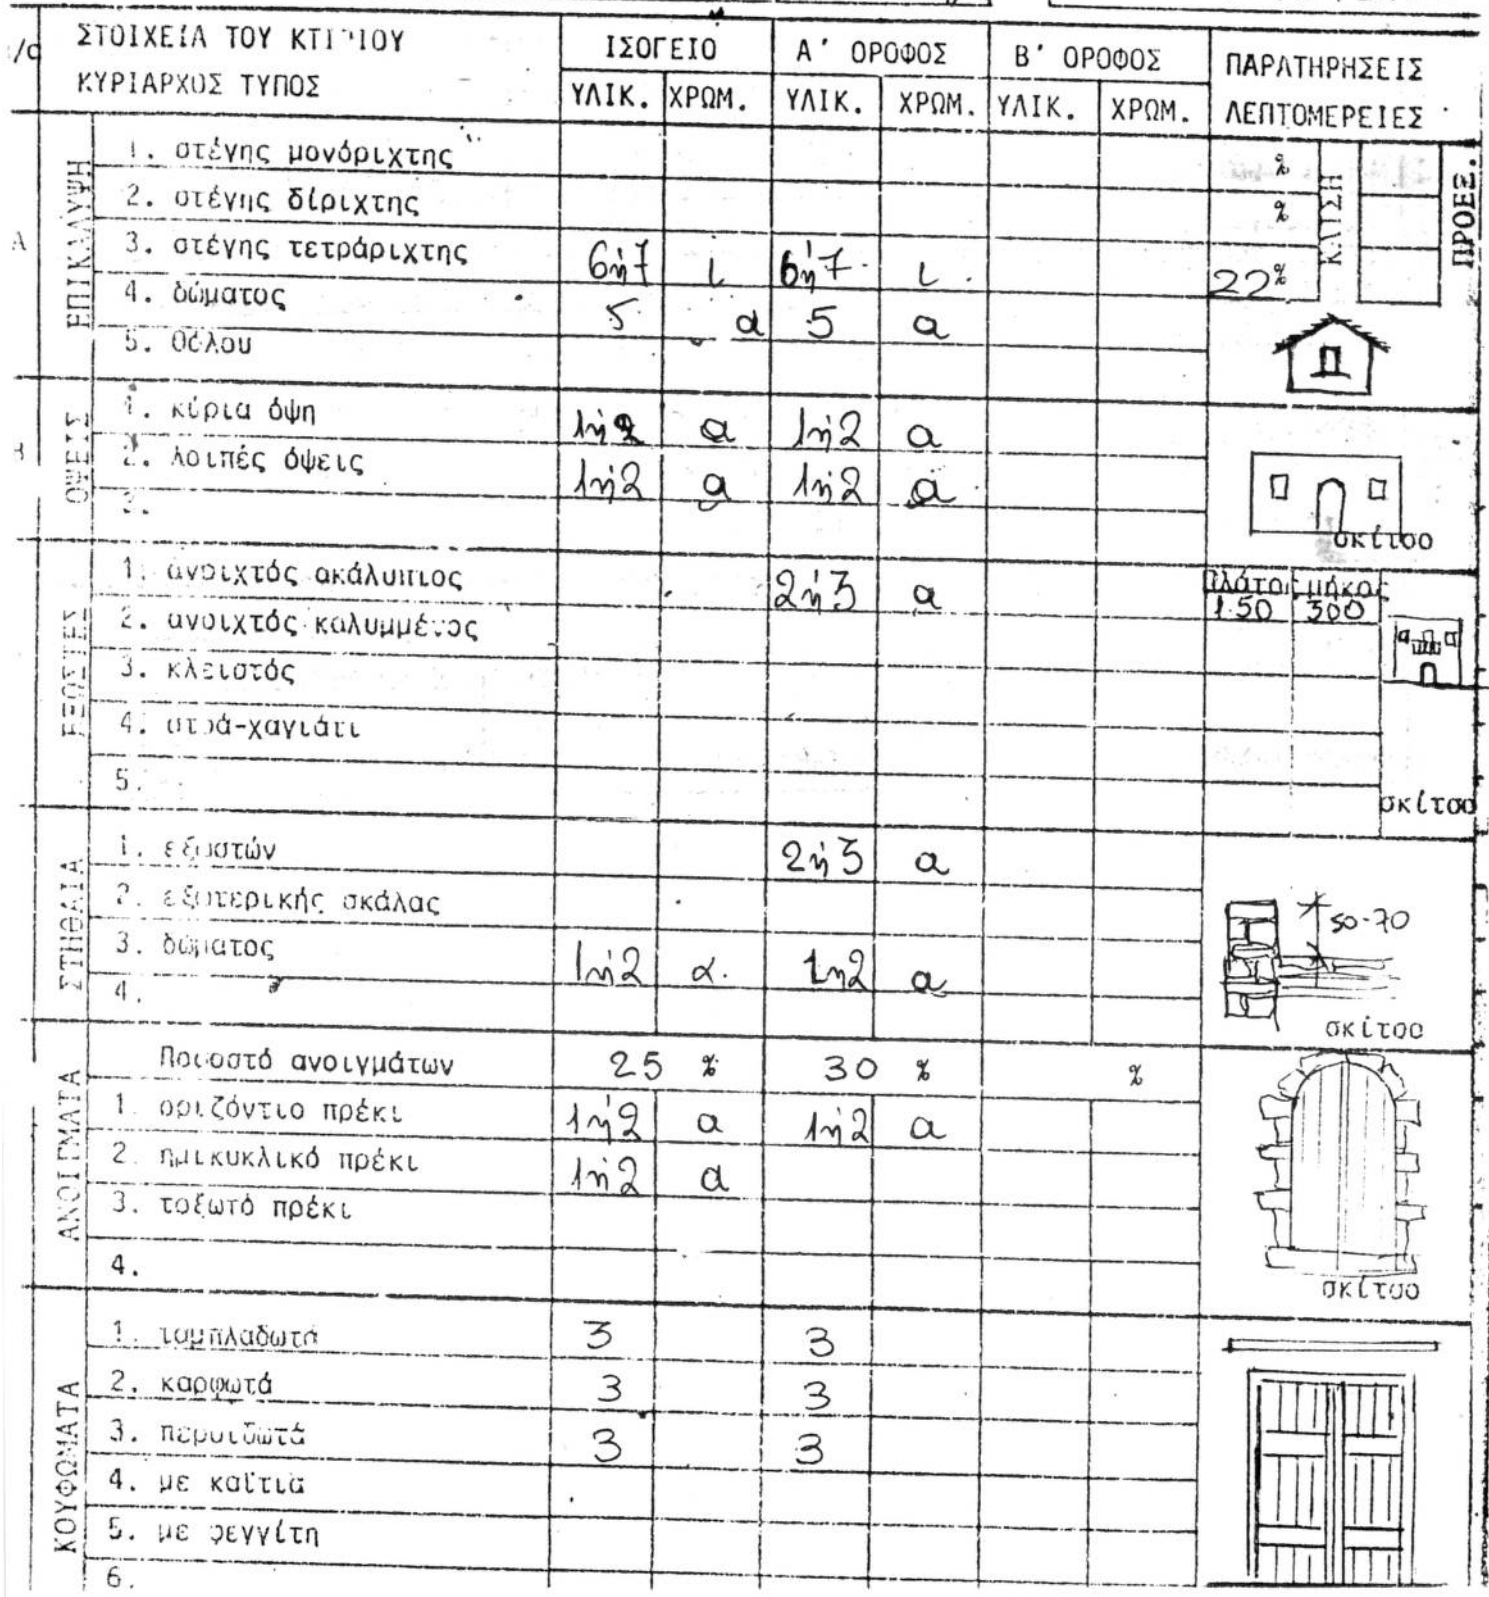 /α ΣΤΟΙΧΕΙΑ ΤΟΥ ΚΤΙΡΙΟΥ ΙΣΟΓΕΙΟ Α' ΟΡΟΦΟΣ Β' ΟΡΟΦΟΣ ΠΑΡΑΤΗΡΗΣΕΙΣ
ΚΥΡΙΑΡΧΟΣ ΤΥΠΟΣ ΥΛΙΚ. ΧΡΩΜ. ΥΛΙΚ. ΧΡΩΜ. ΥΛΙΚ. ΧΡΩΜ. ΛΕΠΤΟΜΕΡΕΙΕΣ
Α ΕΠΙΚΑΛΥΨΗ
1. στέγης μονόριχτης % ΚΛΙΣΗ ΠΡΟΕΞ.
2. στέγης δίριχτης %
3. στέγης τετράριχτης 6ή7 ι 6ή7 ι 22%
4. δώματος 5 α 5 α
5. θόλου
ΟΨΕΙΣ
1. κύρια όψη 1ή2 α 1ή2 α
2. λοιπές όψεις 1ή2 α 1ή2 α
3. σκίτσο
ΕΞΩΣΤΕΣ
1. ανοιχτός ακάλυπτος 2ή3 α πλάτος μήκος
2. ανοιχτός καλυμμένος 1.50 300
3. κλειστός
4. -χαγιάτι
5. σκίτσο
ΣΤΗΘΑΙΑ
1. εξωστών 2ή3 α
2. εξωτερικής σκάλας 50-70
3. δώματος 1ή2 α. 1ή2 α
4. σκίτσο
ΑΝΟΙΓΜΑΤΑ
Ποσοστό ανοιγμάτων 25 % 30 % %
1. οριζόντιο πρέκι 1ή2 α 1ή2 α
2. ημικυκλικό πρέκι 1ή2 α
3. τοξωτό πρέκι
4. σκίτσο
ΚΟΥΦΩΜΑΤΑ
1. ταμπλαδωτά 3 3
2. καρφωτά 3 3
3. περσιδωτά 3 3
4. με καϊτια
5. με φεγγίτη
6.